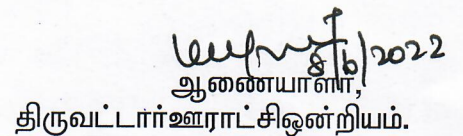 8/6/2022
ஆணையாளர்,
திருவட்டார்ஊராட்சிஒன்றியம்.